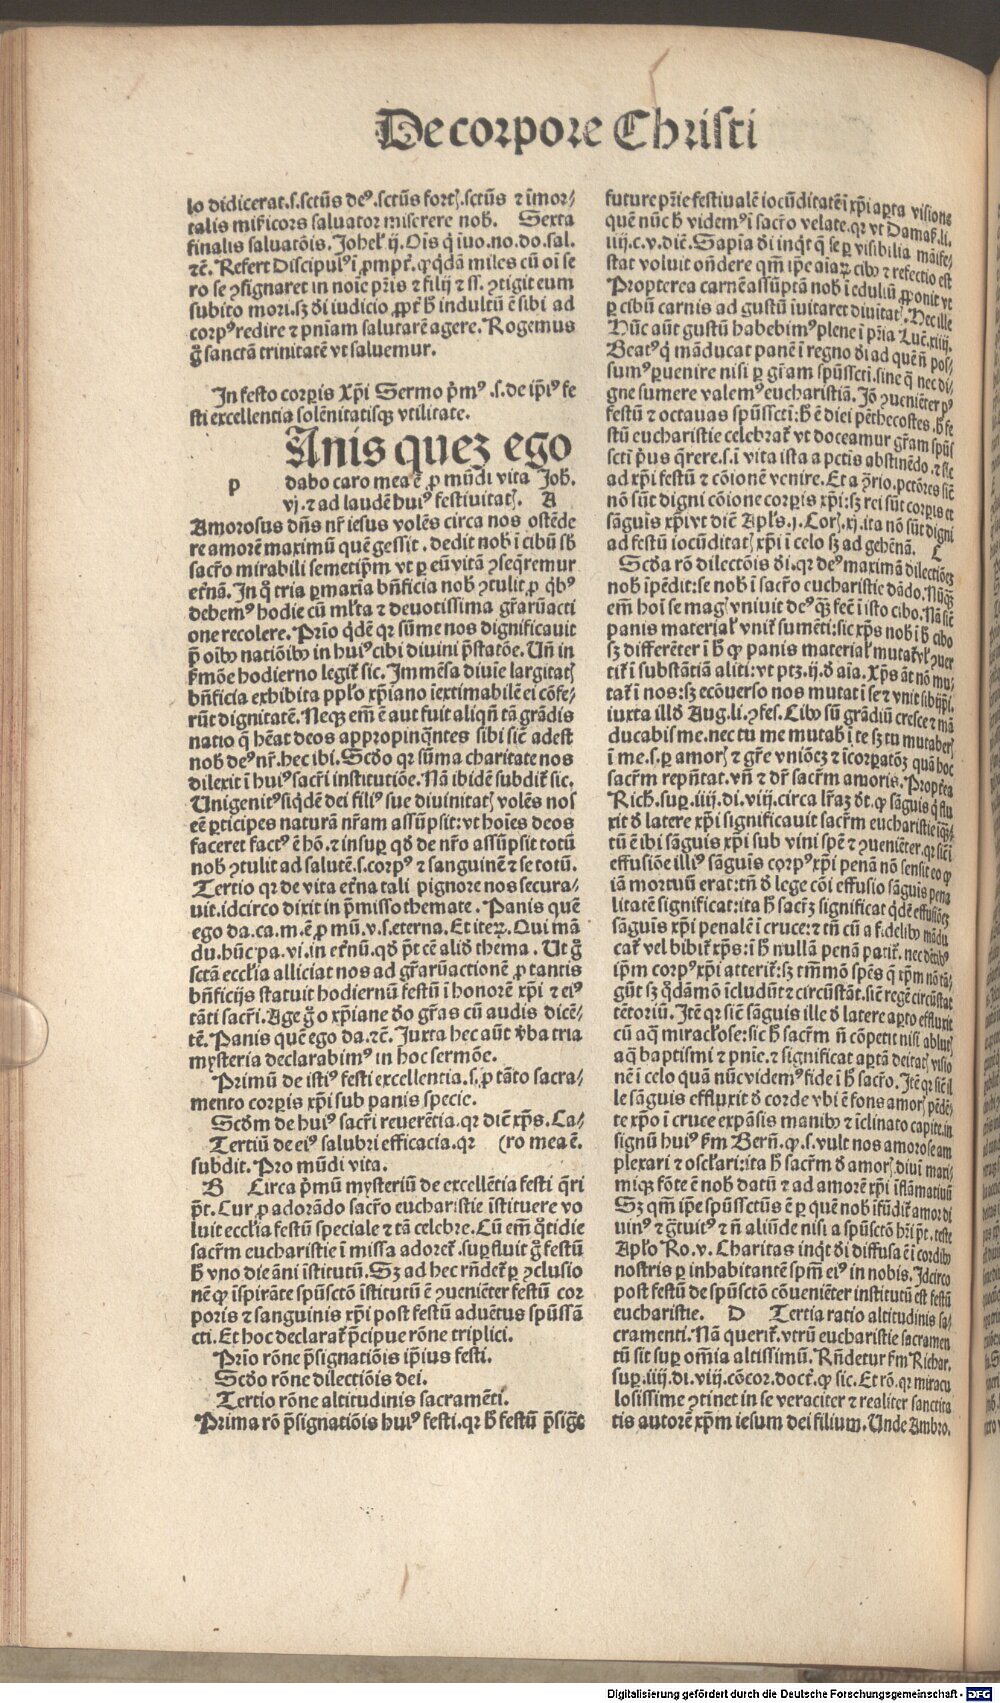 De corpore Christi
lo didicerat.s.sctūs deꝰ.sctūs fortꝭ.sctūs ⁊ īmor⸗
talis mir̄icors saluator miserere nob. Sexta
finalis saluatōis. Johel' ij. Oīs q̇ īuo.no.do.sal.
⁊c̄. Refert Discipulꝰ ī ꝓmpt̄. ꝙ q̇dā miles cū oī se
ro se ꝯsignaret in noīe pr̄is ⁊ filij ⁊ ss. ꝯtigit eum
subito mori. sꝫ di iudicio ꝓpt̄ h̄ indultū ē sibi ad
corpꝰ redire ⁊ pn̄iam salutarē agere. Rogemus
g̊ sanctā trinitatē vt saluemur.
In festo corꝑis Xp̄i Sermo p̄mꝰ .s. de ip̄iꝰ fe
sti excellentia solēnitatisqꝫ vtilitate.
Anis quez ego
p dabo caro mea ē ꝓ mūdi vita Joh.
vj. ⁊ ad laudē huiꝰ festiuitatꝭ. A
Amorosus dn̄s nr̄ iesus volēs circa nos ostēde
re amorē maximū quē gessit. dedit nob ī cibū sb
sacr̄o mirabili semetip̄m vt ꝑ eū vitā ꝯseq̄remur
et̄nā. In q̊ tria ꝑmaxīa bn̄ficia nob ꝯtulit ꝓ q̇bꝰ
debemꝰ hodie cū ml̄ta ⁊ deuotissima gr̄arū acti
one recolere. Prīo q̇dē qr sūme nos dignificauit
p̄ oībꝫ natiōibꝫ in huiꝰ cibi diuini p̄statōe. Un̄ in
p̄mōe hodierno legit̄ sic. Immēsa diuīe largitatꝭ
bn̄ficia exhibita pp̄lo xp̄iano īextimabilē ei cōfe⸗
rūt dignitatē. Neqꝫ em̄ ē aut fuit aliqn̄ tā grādis
natio q̄ hēat deos appropinq̄ntes sibi sic̄ adest
nob deꝰ nr̄. hec ibi. Scd̄o qr sūma charitate nos
dilexit ī huiꝰ sacr̄i institutiōe. Nā ibidē subdit̄ sic.
Unigenitꝰ siq̇dē dei filiꝰ sue diuinitatꝭ volēs nos
eē ꝑticipes naturā nr̄am assūpsit: vt hoīes deos
faceret factꝰ ē hō. ⁊ insuꝑ qd̄ de nr̄o assūpsit totū
nob ꝯtulit ad salutē.s.corpꝰ ⁊ sanguinē ⁊ se totū.
Tertio qr de vita et̄na tali pignore nos secura⸗
uit. idcirco dixit in p̄misso themate. Panis quē
ego da.ca.m.ē ꝓ mū.v.s.eterna. Et iteꝝ. Qui mā
du.hūc pa.vi.in et̄nū. qd̄ p̄t eē aliđ thema. Ut g̊
sctā eccl̄ia alliciat nos ad gr̄arū actionē ꝓ tantis
bn̄ficijs statuit hodiernū festū ī honorē xp̄i ⁊ eiꝰ
tāti sacr̄i. Age g̊ o xp̄iane do gr̄as cū audis dicē⸗
tē. Panis quē ego da.⁊c̄. Juxta hec aūt v̄ba tria
mysteria declarabimꝰ in hoc sermōe.
Primū de istiꝰ festi excellentia.s. ꝓ tāto sacra⸗
mento corꝑis xp̄i sub panis specie.
Scd̄m de huiꝰ sacr̄i reuerētia. qr diē xp̄s. Ca⸗
Tertiū de eiꝰ salubri efficacia. qr (ro mea ē.
subdit. Pro mūdi vita.
B Circa p̄mū mysteriū de excellētia festi q̄ri
p̄t. Cur ꝓ adorādo sacr̄o eucharistie īstituere vo
luit eccl̄ia festū speciale ⁊ tā celebre. Cū em̄ q̊tidie
sacr̄m eucharistie ī missa adoret̄. suꝑfluit g̊ festū
h̄ vno die āni īstitutū. Sꝫ ad hec rn̄det̄ ꝑ ꝯclusio
nē ꝙ īspirāte spūsctō īstitutū ē ꝯueniēter festū cor
poris ⁊ sanguinis xp̄i post festū aduētus spūssā
cti. Et hoc declarat̄ p̄cipue rōne triplici.
Prīo rōne p̄signatiōis ip̄ius festi.
Scd̄o rōne dilectiōis dei.
Tertio rōne altitudinis sacramēti.
Prima rō p̄signatiōis huiꝰ festi. qr h̄ festū p̄sig̊t
future pr̄ie festiualē iocūditatē ī xp̄i aꝑta visione
quē nūc h̄ videmꝰ ī sacr̄o velate. qr vt Damas̄. li.
iiij. c. v. diē. Sapīa di inq̇t q̄ se ꝑ visibilia māife⸗
stat voluit on̄dere qm̄ ip̄e aīaꝝ cibꝫ ⁊ refectio est
Propterea carnē assūptā nob ī eduliū ꝓponit vt
ꝑ cibū carnis ad gustū īuitaret diuitatꝭ. Hec ille
Hūc aūt gustū habebimꝰ plene ī pr̄ia Luc̄. xiiij.
Beatꝰ q̇ māducat panē ī regno di ad quē n̄ pos⸗
sumꝰ ꝑuenire nisi ꝑ gr̄am spūsscti. sine q̄ nec di⸗
gne sumere valemꝰ eucharistiā. Jō ꝯueniēter pꝰ
festū ⁊ octauas spūsscti: h̄ ē diei pēthecostes. h̄ fe
stū eucharistie celebrat̄ vt doceamur gr̄am spūs
scti p̄us q̄rere. s. ī vita ista a pctīs abstinēdo. ⁊ sic
ad xp̄i festū ⁊ cōionē venire. Et a ꝯ̄rio. pctōres sic̄
nō sūt digni cōione corꝑis xp̄i: sꝫ rei sūt corꝑis et
sāguis xp̄i vt diē Apl̄s. j. Corꝭ. xj. ita nō sūt digni
ad festū iocūditatꝭ xp̄i ī celo sꝫ ad gehēnā. C
Scd̄a rō dilectōis di. qr deꝰ maximā dilectiōeꝫ
nob īpēdit: se nob ī sacr̄o eucharistie dādo. Nūqꝫ
em̄ hoī se magꝭ vniuit deꝰ qꝫ fec̄ ī isto cibo. Nā sic̄
panis material' vnit̄ sumēti: sic xp̄s nob ī h̄ cibo
sꝫ differēter ī h̄ ꝙ panis material' mutat̄ vl' ꝯuer
tit̄ ī substātiā aliti: vt ptꝫ. ij. đ aīa. Xp̄s āt nō mu⸗
tat̄ ī nos: sꝫ ecōuerso nos mutat ī se ⁊ vnit sibijpi.
iuxta illđ Aug. li. ꝯfes. Cibꝫ sū grādiū cresce ⁊ mā
ducabis me. nec tu me mutab ī te sꝫ tu mutaberꝭ
ī me. s. ꝑ amorꝭ ⁊ gr̄e vniōeꝫ ⁊ īcorꝑatōꝫ quā hoc
sacr̄m repn̄tat. vn̄ ⁊ dr̄ sacr̄m amoris. Propt̄ea
Rich. suꝑ. iiij. di. viij. circa lr̄aꝫ dt. ꝙ sāguis q̇ flu
xit đ latere xp̄i significauit sacr̄m eucharistie īqꝫ⸗
tū ē ibi sāguis xp̄i sub vini spē ⁊ ꝯueniēter. qr sic̄ ī
effusiōe illiꝰ sāguīs corpꝰ xp̄i penā nō sensit eo ꝙ
iā mortuū erat: tn̄ đ lege cōi effusio sāguis pena
litatē significat: ita h̄ sacr̄ꝫ significat q̇dē effusiōeꝫ
sāguis xp̄i penalē ī cruce: ⁊ tn̄ cū a fidelibꝫ mādu
cat̄ vel bibit̄ xp̄s: ī h̄ nullā penā patit̄. nec dētibꝰ
ip̄m corpꝰ xp̄i atterit̄: sꝫ tm̄mō spēs q̄ xp̄m nō tā⸗
gūt sꝫ q̊dāmō īcludūt ⁊ circūstāt. sic̄ regē circūstāt
tētoriū. Itē qr sic̄ sāguis ille đ latere aꝑto effluxit
cū aq̄ miracl'ose: sic h̄ sacr̄m n̄ cōpetit nisi ablutꝭ
aq̄ baptismi ⁊ pnīe. ⁊ significat aꝑtā deitatꝭ visio
nē ī celo quā nūc videmꝰ fide ī h̄ sacr̄o. Itē qr sic̄ il
le sāguis effluxit đ corde vbi ē fons amorꝭ pēdē⸗
te xp̄o ī cruce expāsis manibꝫ ⁊ īclinato capite. in
signū huiꝰ p̄m Bern̄. ꝙ. s. vult nos amorose am
plexari ⁊ oscl'ari: ita h̄ sacr̄m đ amorꝭ diuī maxi⸗
miqꝫ fōte ē nob datū ⁊ ad amorē xp̄i īflāmatiuū
Sꝫ qm̄ ip̄e spūssctūs ē ꝑ quē nob īfūdit̄ amor di
uinꝰ ⁊ g̊tuitꝰ ⁊ n̄ aliūde nisi a spūsctō hr̄i p̄t. teste
Apl̄o Ro. v. Charitas inq̇t di diffusa ē ī cordibꝫ
nostris ꝑ inhabitantē spm̄ eiꝰ in nobis. Idcirco
post festū de spūsctō cōueniēter institutū est festū
eucharistie. D Tertia ratio altitudinis sa⸗
cramenti. Nā querit̄. vtrū eucharistie sacramen
tū sit suꝑ om̄ia altissimū. Rn̄detur p̄m Richar.
suꝑ. iiij. di. viij. cōcor. doct̄. ꝙ sic. Et rō. qr miracu
losissime ꝯtinet in se veraciter ⁊ realiter sanctita
tis autorē xp̄m iesum dei filium. Unde Ambro.
Digitalisierung gefördert durch die Deutsche Forschungsgemeinschaft - DFG